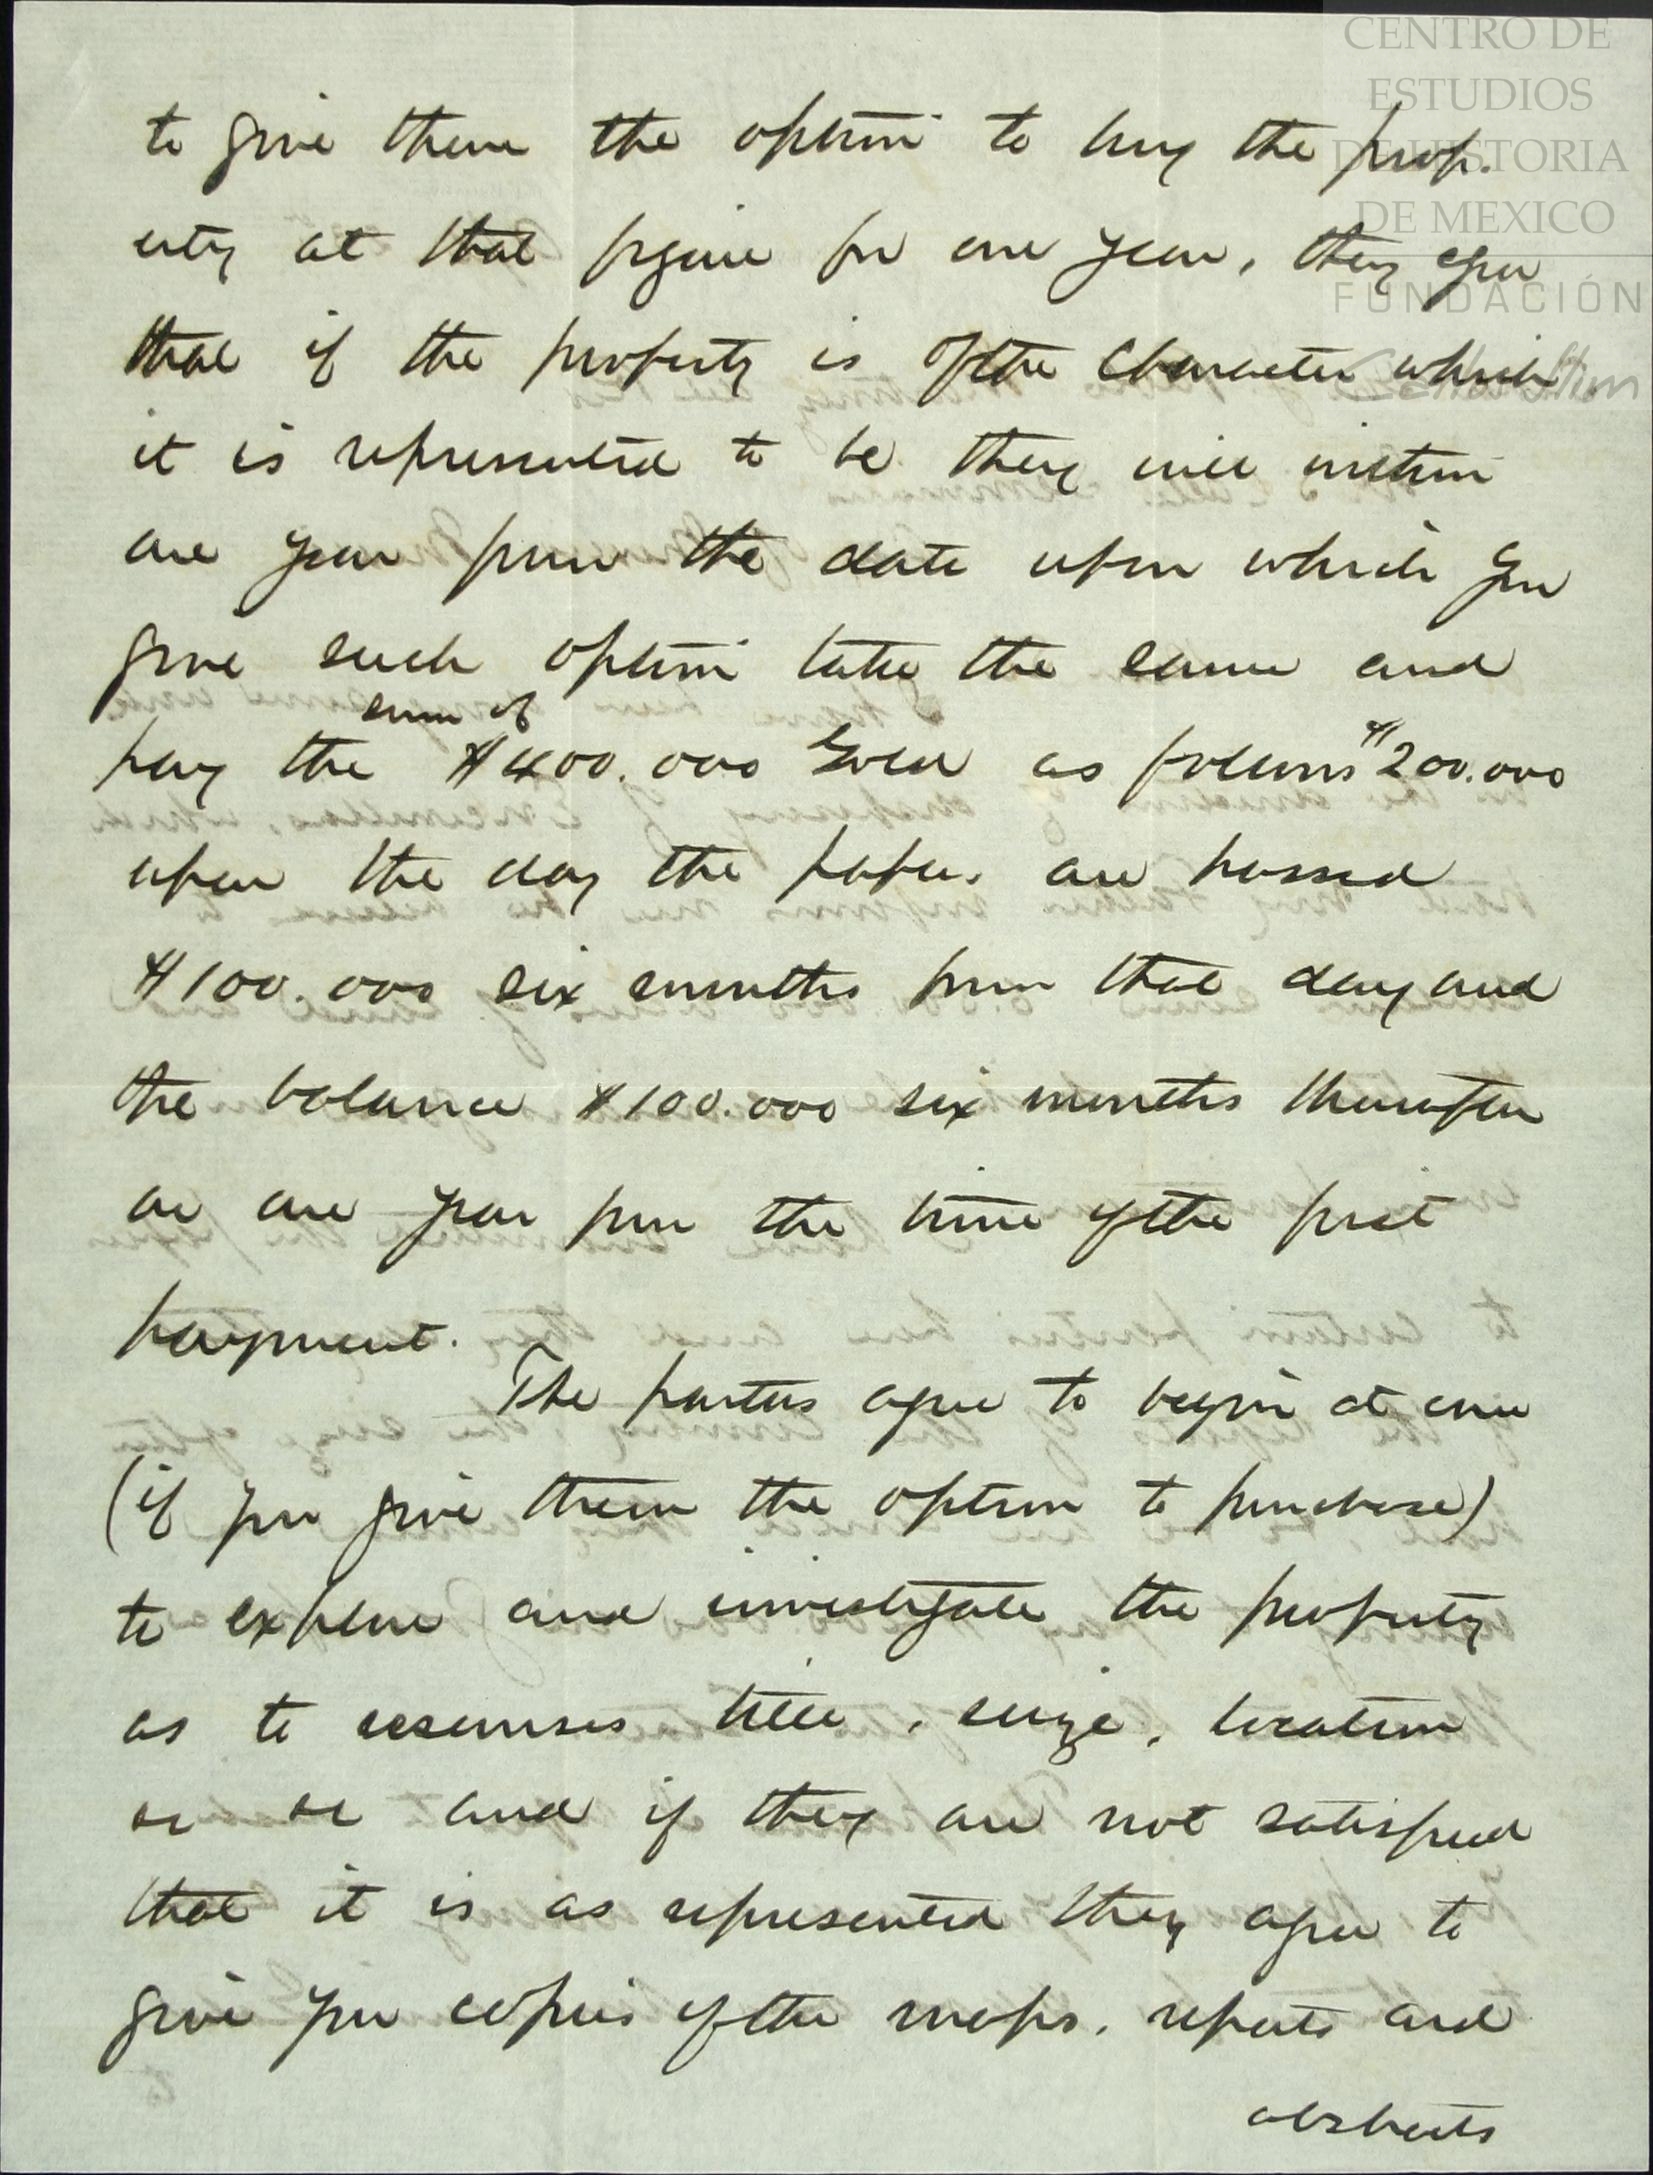 CENTRO DE
ESTUDIOS
DE HISTORIA
DE MEXICO
FUNDACIÓN
to give them the option to buy the prop-
erty at that figure for one year, they agree
that if the property is of the character which
it is represented to be they will within
one year from the date upon which you
give such option take the same and
sum of
pay the $400.000 Gold as follows $200.000
upon the day the papers are passed
$100.000 six months from that day and
the balance $100.000 six months thereafter
or one year from the time of the first
payment.
The parties agree to begin at once
(if you give them the option to purchase)
to explore and investigate the property
as to resources title, size, location
&c &c and if they are not satisfied
that it is as represented they agree to
give you copies of the maps, reports and
abstracts